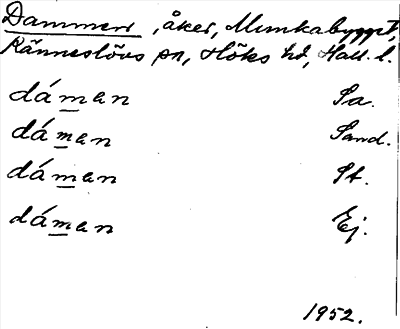 Dammen, åker, Munkabygget,
Ränneslövs sn, Höks hd, Hall. l.
dáman Sa.
dáman Sand.
dáman St.
dáman Ej.
1952.